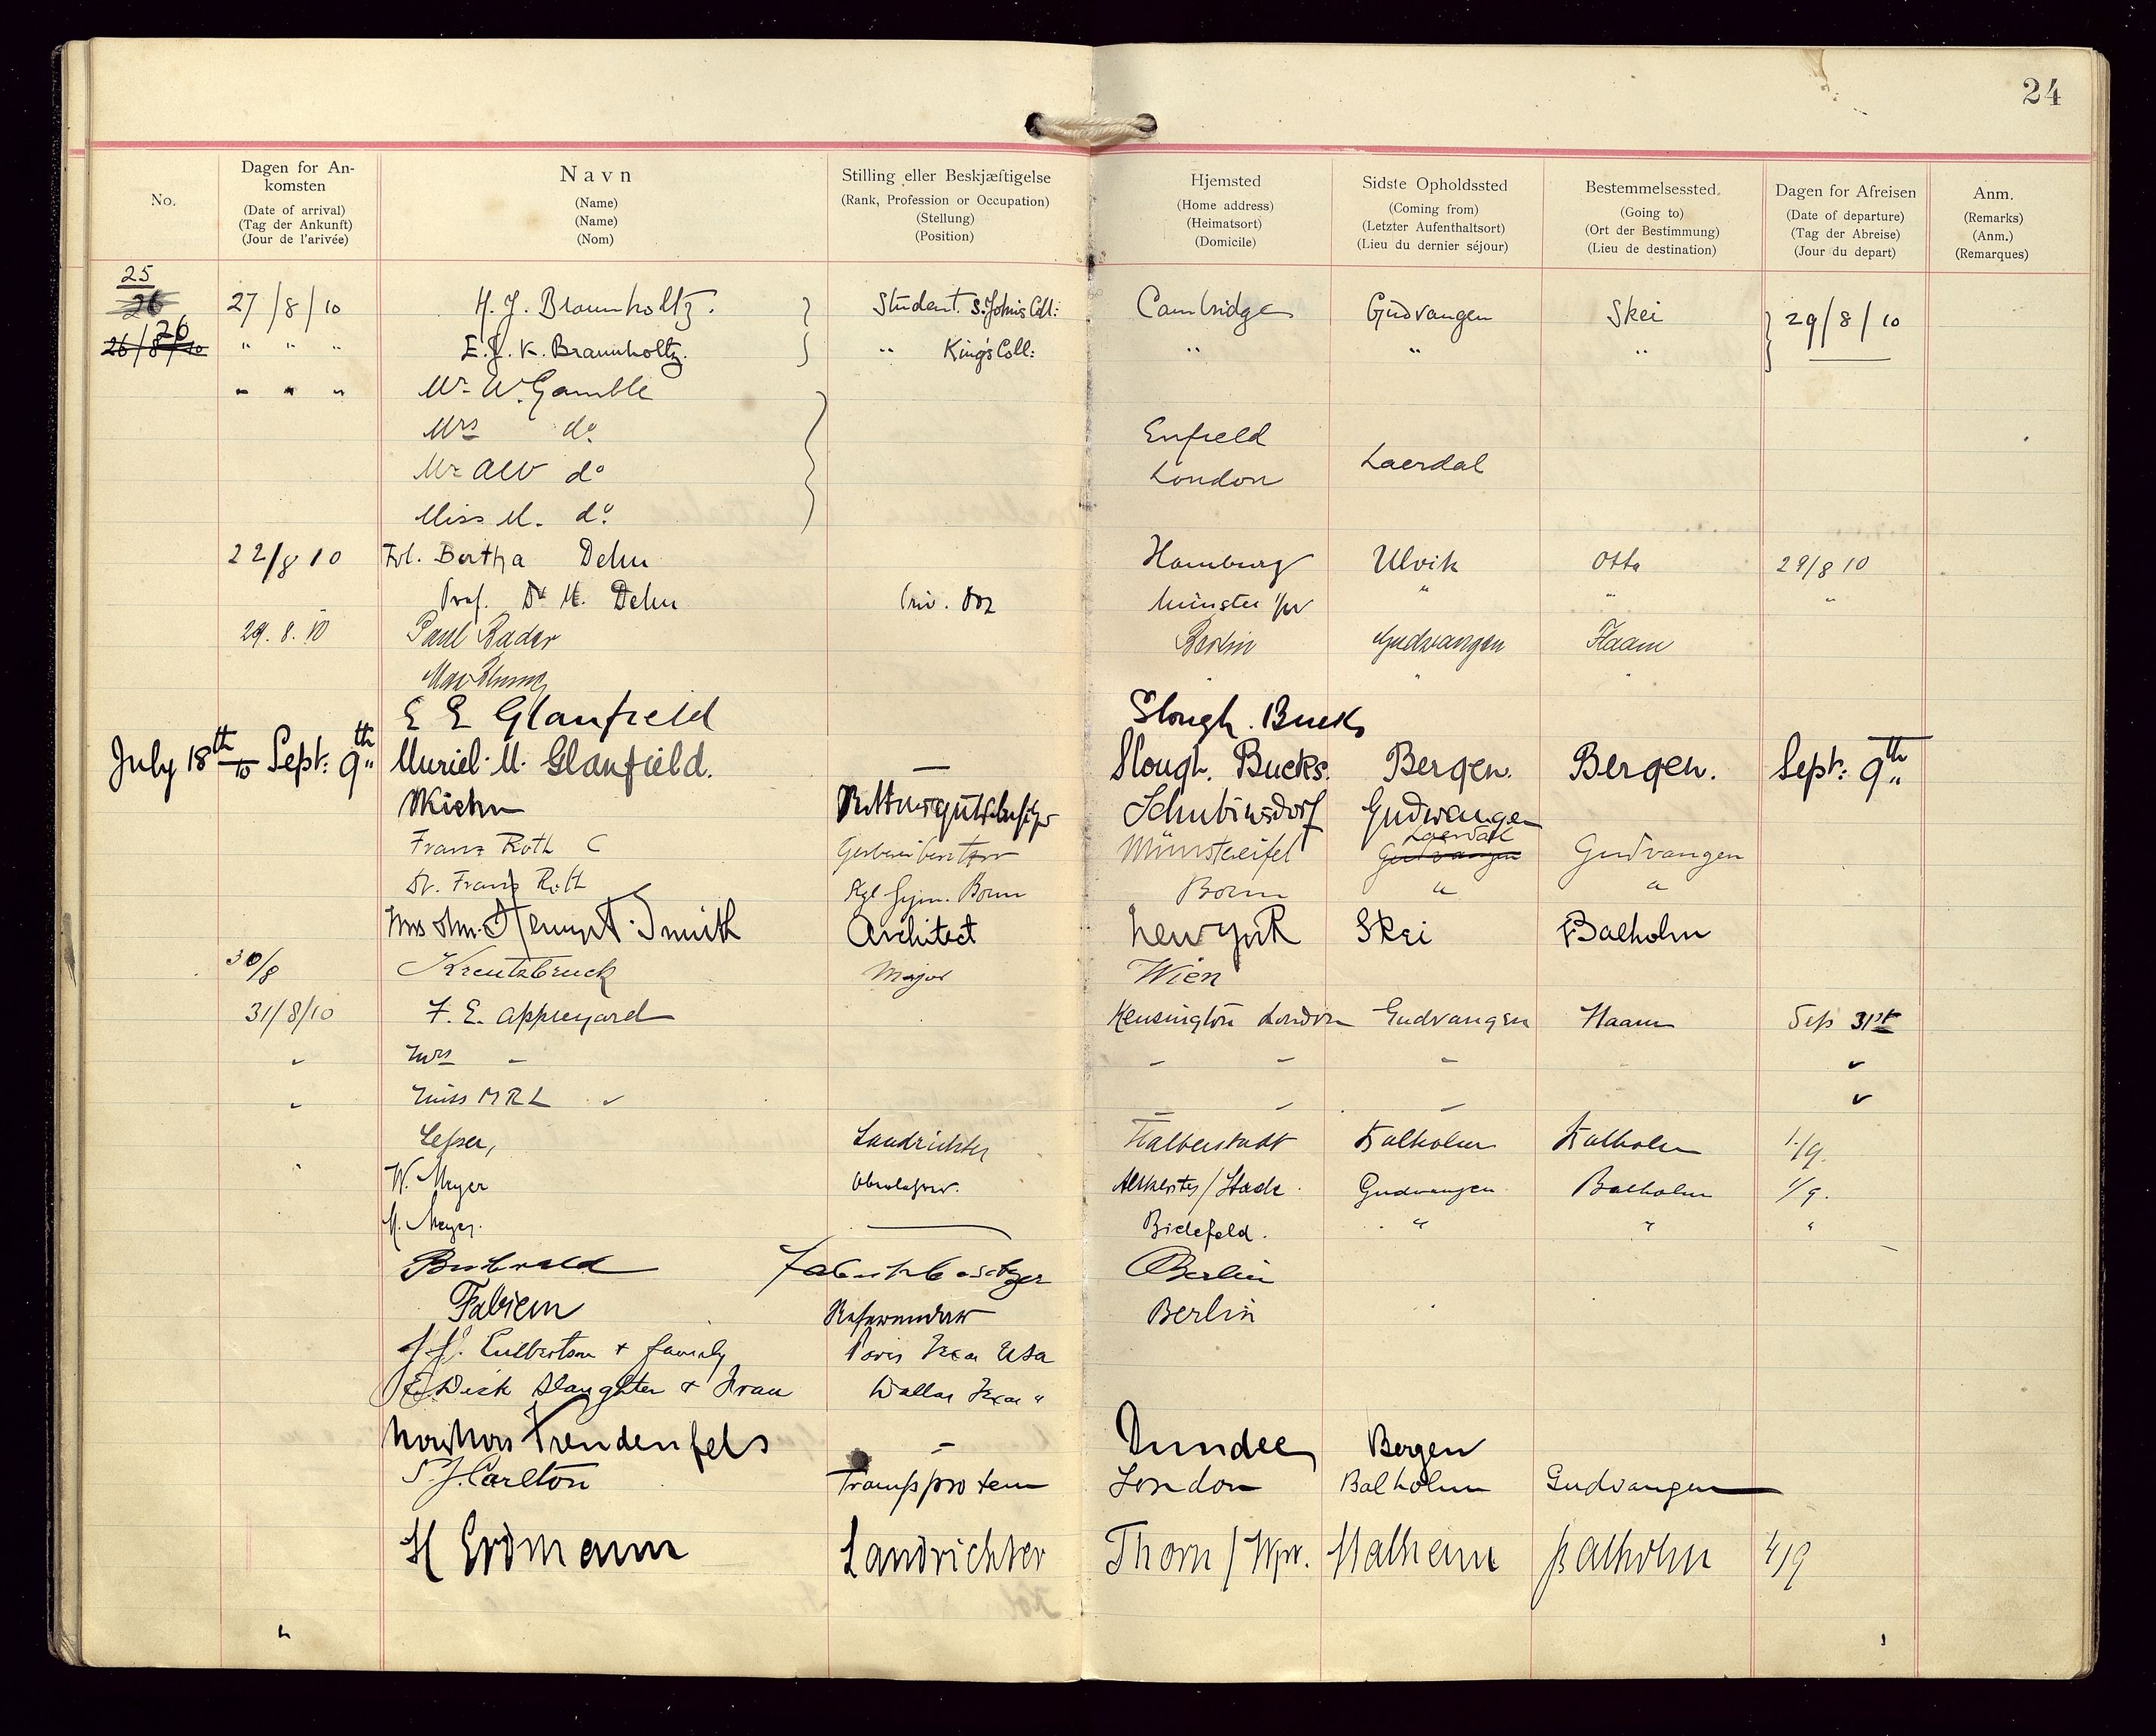 24
No. Dagen for Ankomsten Navn Stilling eller Beskjæftigelse Hjemsted Sidste Opholdssted Bestemmelsessted. Dagen for Afreisen Anm.
(Date of arrival) (Name) (Rank, Profession or Occupation) (Home address) (Coming from) (Going to) (Date of departure) (Remarks)
(Tag der Ankunft) (Name) (Stellung) (Heimatsort) (Letzter Aufenthaltsort) (Ort der Bestimmung) (Tag der Abreise) (Anm.)
(Jour de l'arivée) (Nom) (Position) (Domicile) (Lieu du dernier séjour) (Lieu de destination) (Jour du depart) (Remarques)
25
26 27/8/10 H. J. Braunholtz. Student. S. John's Coll: Cambridge Gudvangen Skei 29/8/10
26/8/10 26 " " " E.J.K. Braunholtz. " King's Coll: " " "
" " " Mr W. Gamble
Mrs do Enfield
Mr do London Laerdal
Miss M. do
22/8 10 Frl. Bertha Dehn Hamburg Ulvik Otta 29/8 10
Prof. Dr H. Dehn Priv. Doz Münster i/W " " "
29. 8. 10 Paul Rader Berlin Gudvangen Flaam
Max " "
E E Glanfield Slough. Bucks
July 18th to Sept: 9th Muriel. M. Glanfield. — Slough. Bucks. Bergen. Bergen. Sept: 9th
Rittergutsbesitzer Schubinsdorf Gudwangen
Franz Roth Gerbereibesitzer Münstereifel Gudvangen Laerdal Gudvangen
Dr. Franz Roth Kgl Gym. Bonn Bonn " "
Smith Architect New York Skei Balholm
30/8 Kreutzbruck Major Wien
31/8/10 F. E. Appleyard Kensington London Gudvangen Flaam Sep 31st
" Mrs " " " " " "
" Miss M R L " " " " "
Lesser, Landrichter Halberstadt Balholm Balholm 1./9.
W. Meyer Oberlehrer. /Stade. Gudvangen Balholm 1/9.
M. Meyer. — Bielefeld. " " "
Fabrikbesitzer Berlin
Fabien Referendar Berlin
J. J. Culbertson + family Paris Texas USA
Dick Slaughter + Frau Dallas Texas "
Trendenfels — Dundee Bergen
S. J. Carlton Tramp pro tem London Balholm Gudvangen
H Erdmann Landrichter Thorn / Wpr. Stalheim Balholm 4/9